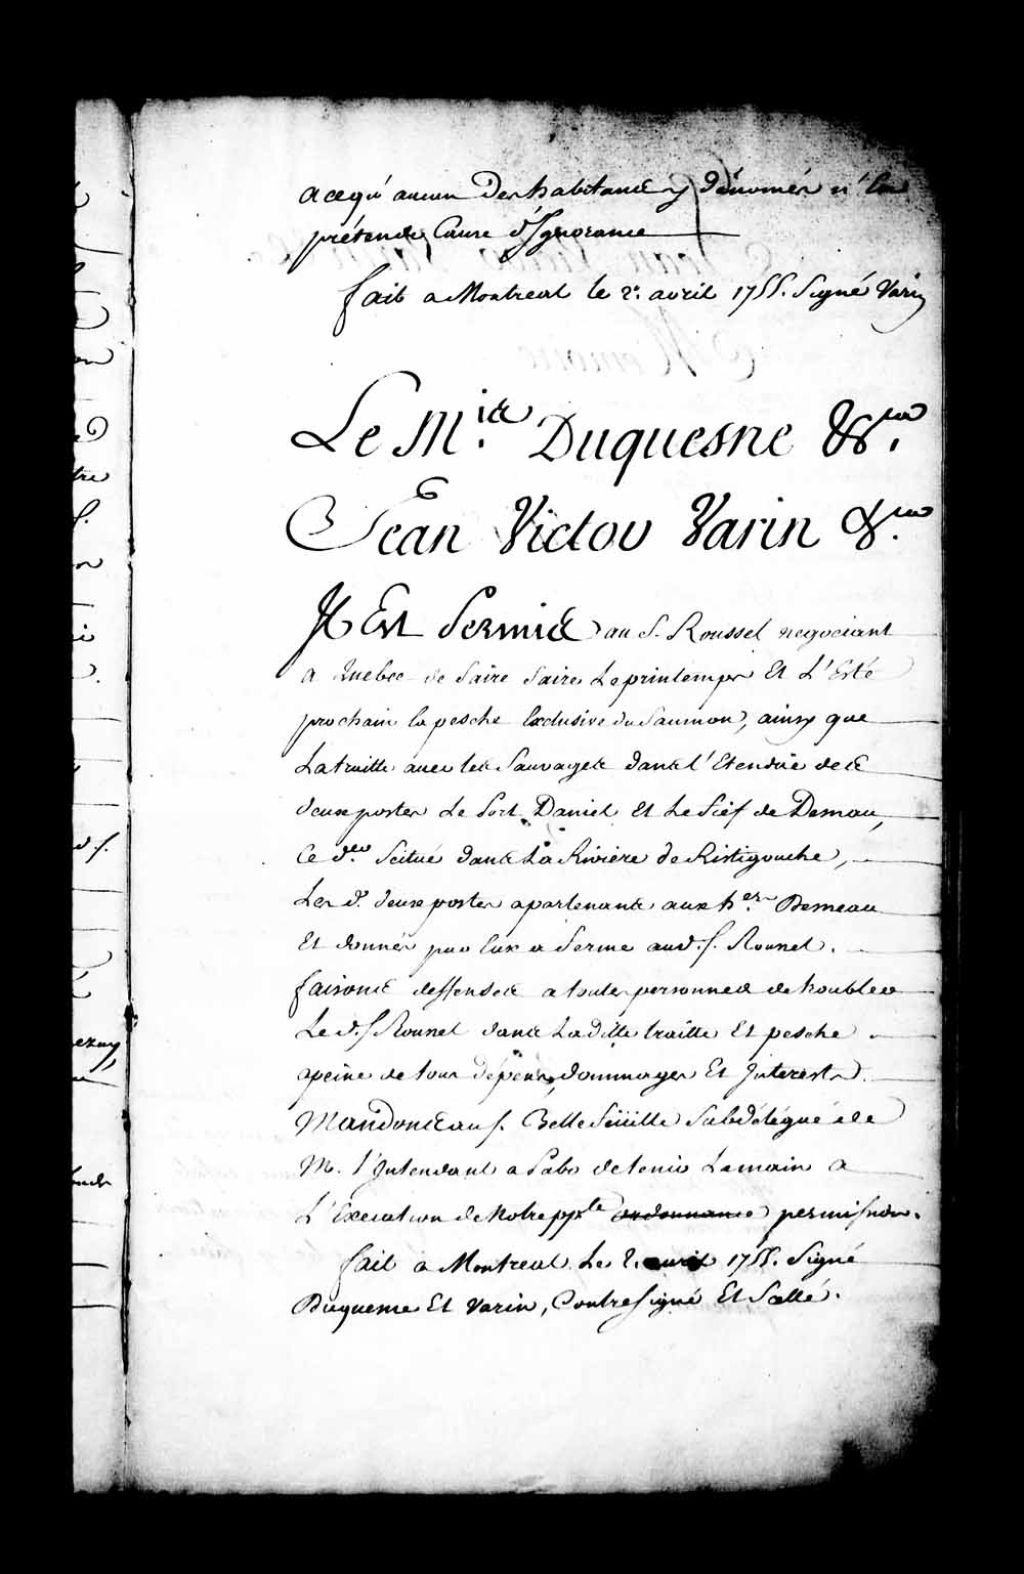 a ce qu'aucun des habitants y dénomés n'en
prétende Cause d'Ignorance
fait a Montreal le 2e. avril 1755. Signé Varin
Le M.is Duquesne &ca.
Jean Victor Varin &ca.
Il Est Permis au S. Roussel negociant
a Quebec de faire faire Le printemps Et L'Esté
prochain la pesche Exclusive du Saumon, ainsy que
La traitte avec les Sauvages dans l'Etendüe des
deux postes Le Port Daniel Et Le fief de Demau,
Ce d.er Scitué dans La Riviére de Ristigouche,
Les d. deux postes apartenants aux h.ers Demeau
Et donnés par Eux a ferme aud. S. Roussel.
faisons deffenses a toutes personnes de troubler
Le d. S. Roussel dans La ditte traitte Et pesche
a peine de tous dépens, dommages Et Interests.
Mandons au S. Bellefeüille Subdélégué de
M. l'Intendant a Pabo de tenir La main a
L'Execution de Notre ppte ordonnance permission.
fait a Montreal Le 2. avril 1755. Signé
Duquesne Et Varin, Contresigné Et Sellé.